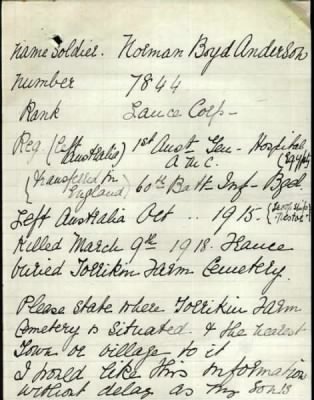 Name Soldier. Norman Boyd Anderson
Number 7844
Rank Lance Corp-
Reg. (Left Australia) 1st Aust Gen- Hospital A.M.C. (Egypt)
(transferred in England) 60th Batt Inf- Bgd.
Left Australia Oct .. 1915-
Killed March 9th 1918. France
buried Torrikin Farm Cemetery.
Please state where Torrikin Farm
Cemetery is situated. & the nearest
Town or village to it
I would like this information
without delay as my son's